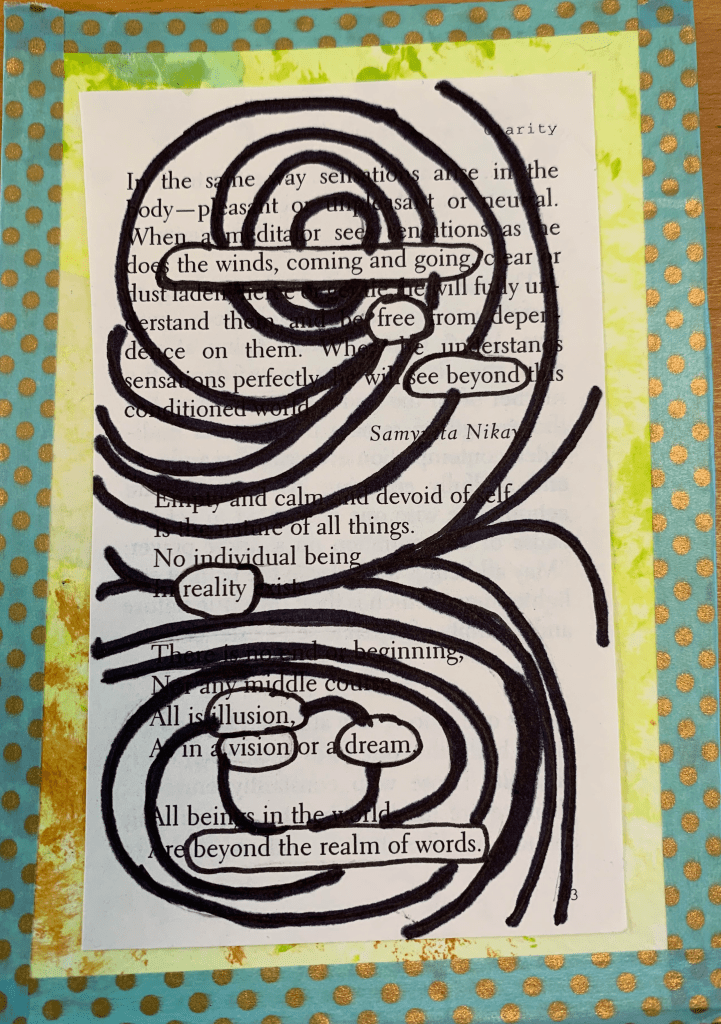 Clarity
In the same way sensations arise in the
body—pleasant or unpleasant or neutral.
When a meditator sees sensations as he
does the winds, coming and going, clear or
dust laden, fierce or gentle, he will fully un-
derstand them and be free from depen-
dence on them. When he understands
sensations perfectly, he will see beyond this
conditioned world.
Samyutta Nikaya
Empty and calm and devoid of self
Is the nature of all things.
No individual being
In reality exists.
There is no end or beginning,
Nor any middle course.
All is illusion,
As in a vision or a dream.
All beings in the world
Are beyond the realm of words.
3